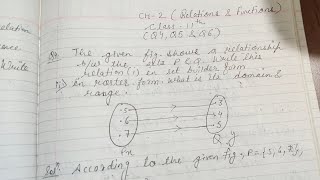 Relation
ence
Write
Ch-2 (Relations & Functions)
Class - 11th
(Q4, Q5 & Q6)
The given fig. shows a relationship
b/w the sets P & Q. Write this
relation (i) in set builder form
in roster form. What is the domain &
range.
5 3
6 4
7 5
P Q y
Solⁿ According to the given fig, P = {5, 6, 7},